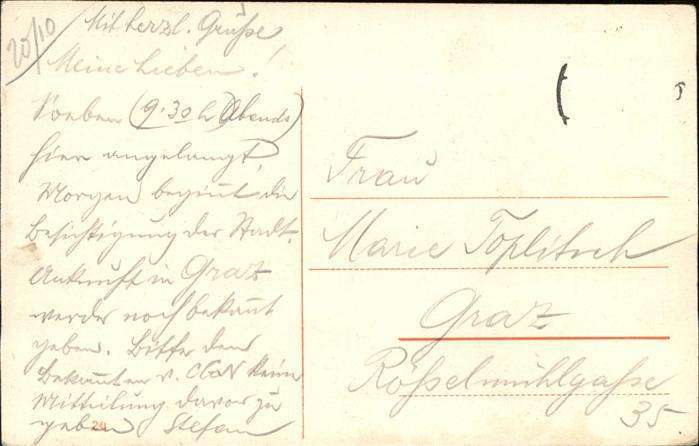 20/10
Mit herzl. Grüße
Meine Lieben!
Soeben (9.30 h Abends)
hier angelangt,
Morgen beginnt die
Besichtigung der Stadt.
Ankunft in Graz
werde noch bekannt
geben. Bitte den
Bekannten v. keine
Mitteilung davon zu
geben Stefan
20
Frau
Marie Toplitsch
Graz
Rößelmühlgaße
35